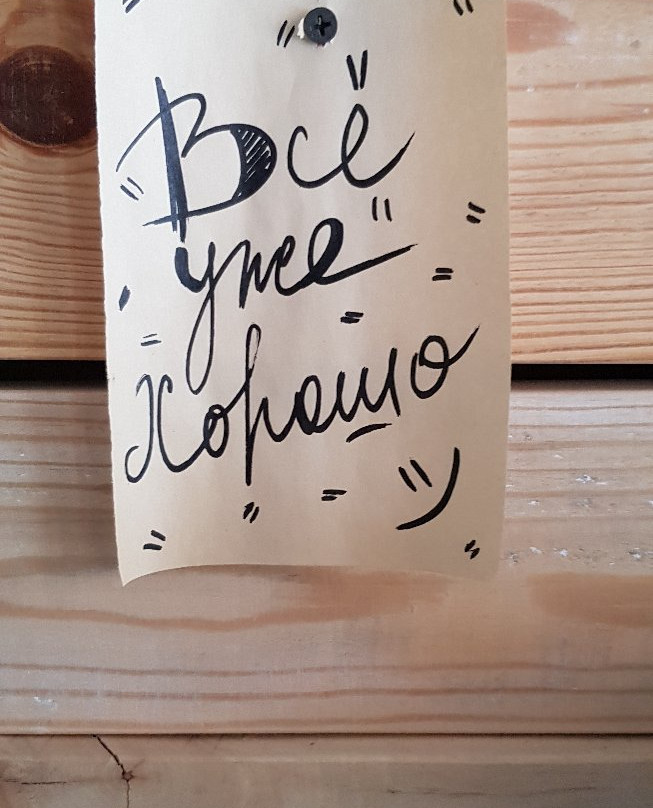 Всё
уже
Хорошо